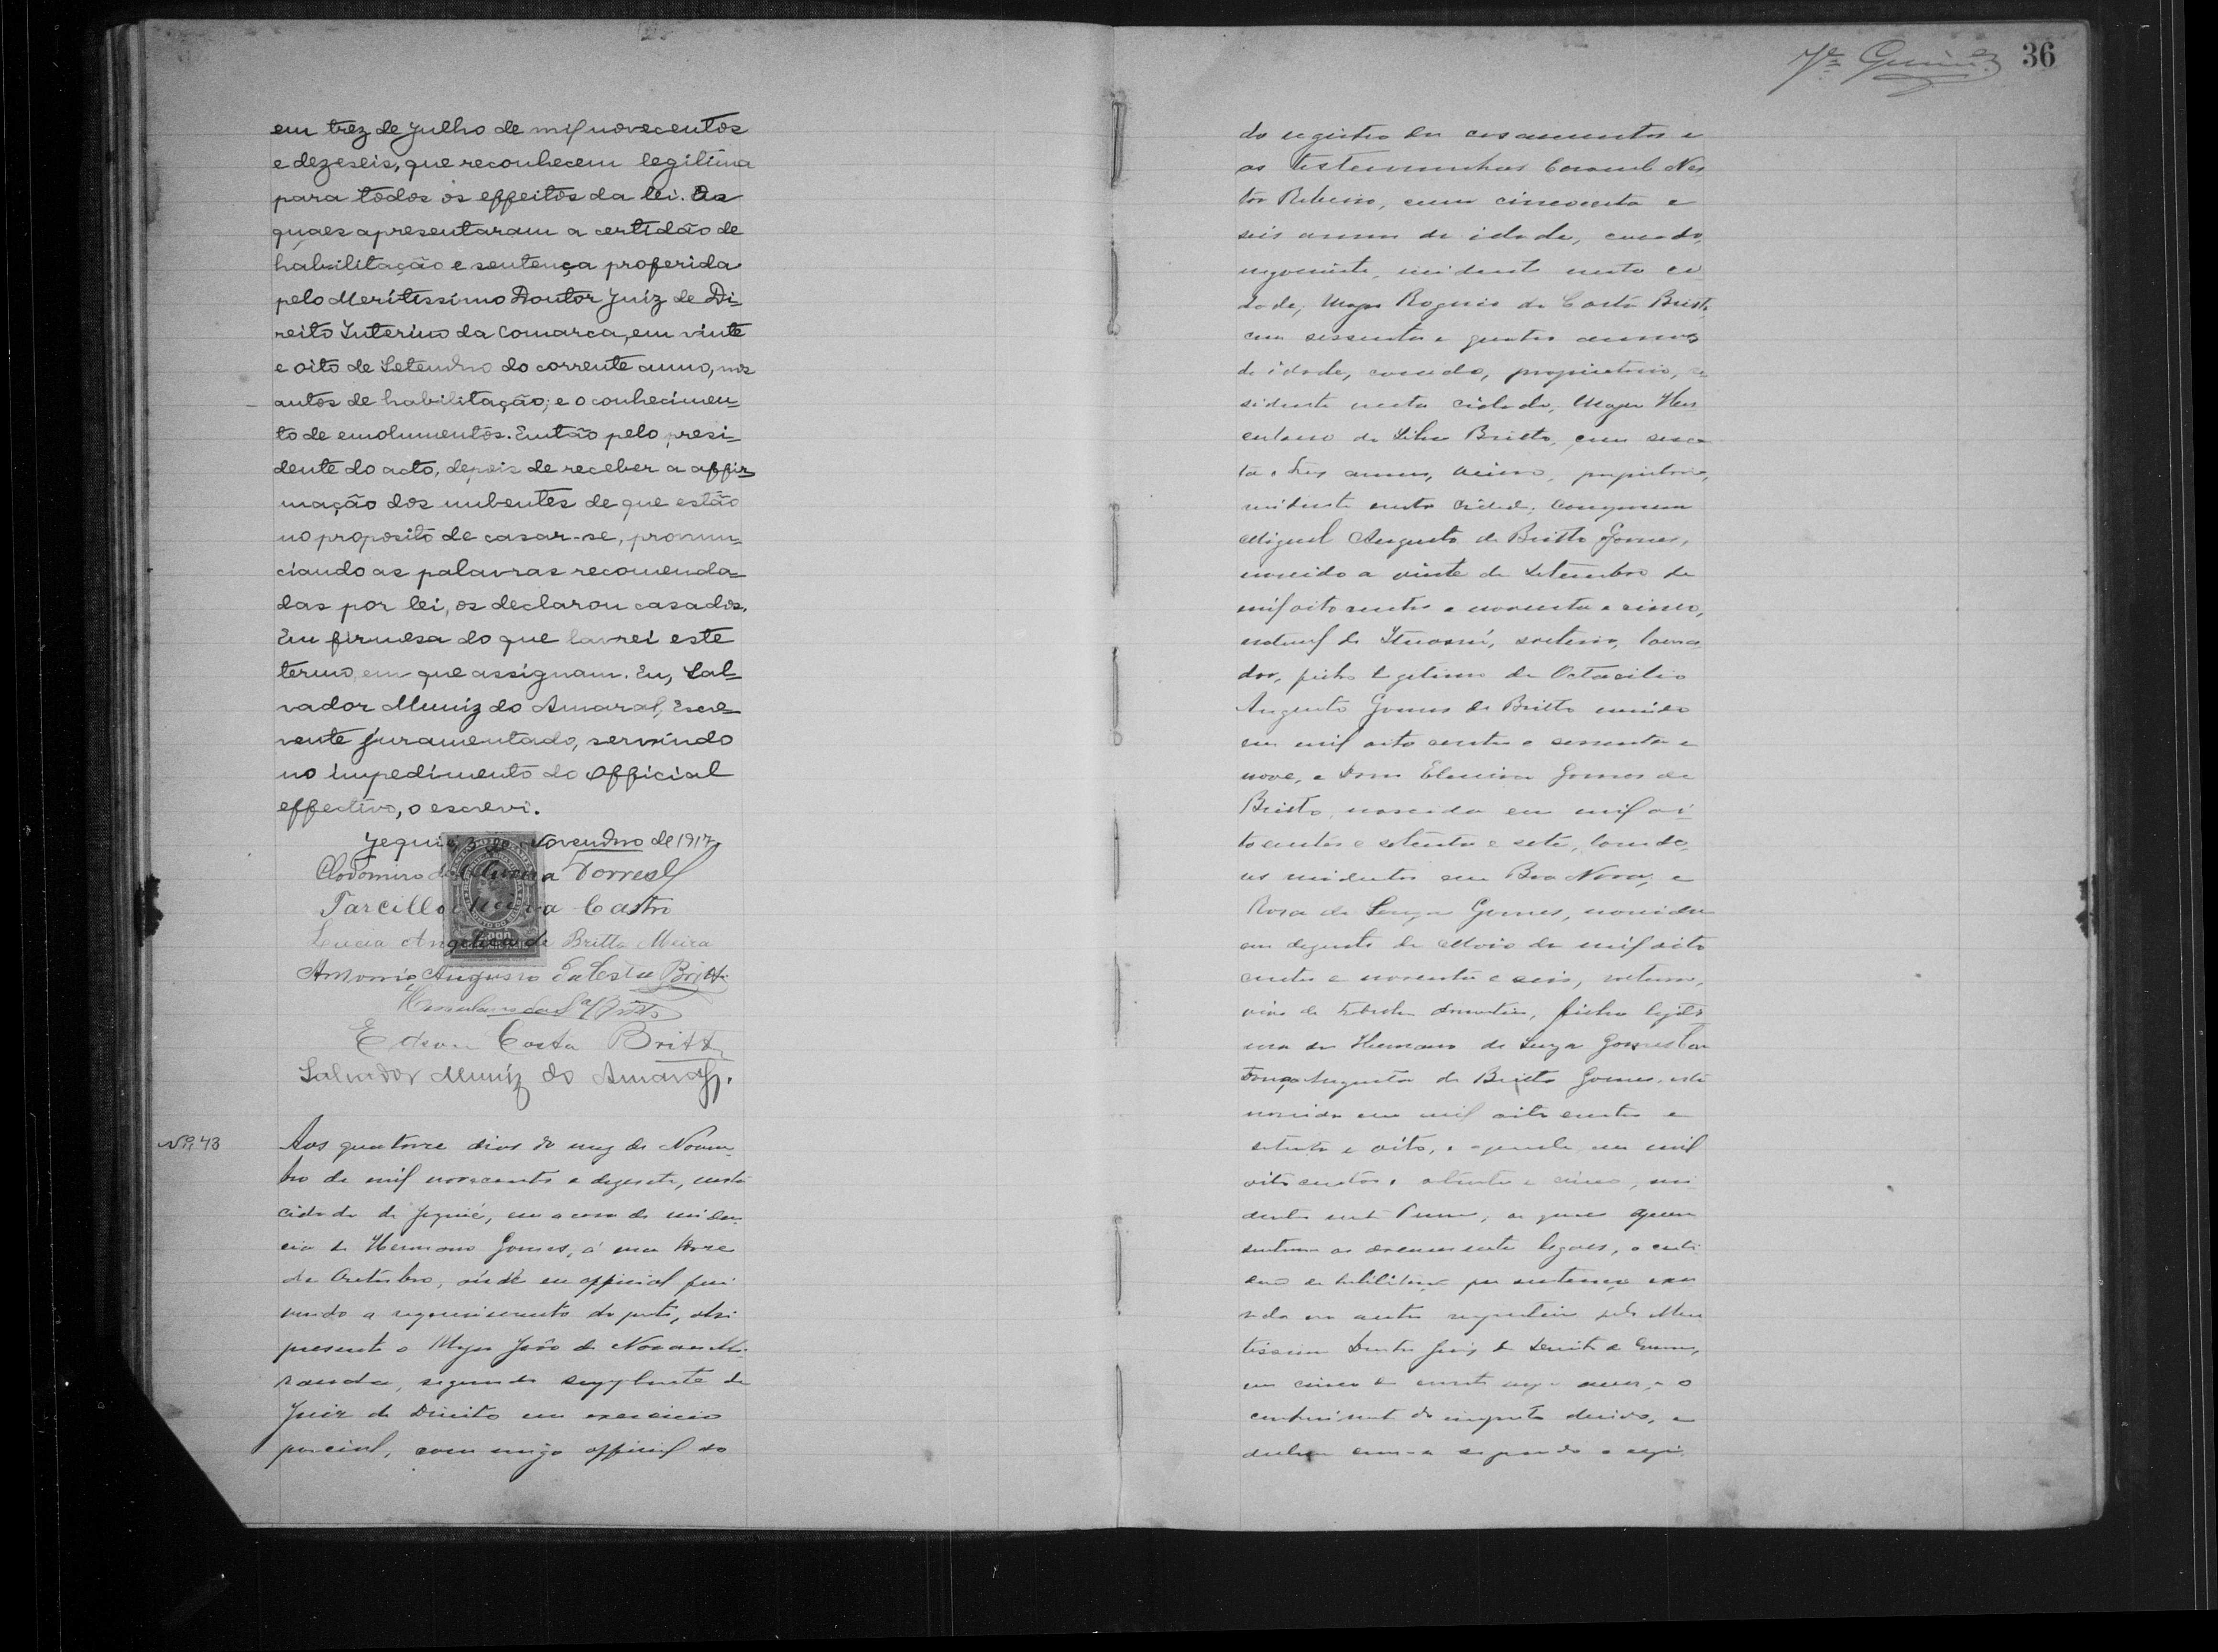 36
em trez de Julho de mil novecentos
e dezeseis, que reconhecem legitima
para todos os effeitos da lei. Os
quaes apresentaram a certidão de
habilitação e sentença proferida
pelo Meritissimo Doutor Juiz de Di-
reito Interino da Comarca, em vinte
e oito de Setembro do corrente anno, nos
autos de habilitação; e o conhecimen-
to de emolumentos. Então pelo presi-
dente do acto, depois de receber a affir-
mação dos nubentes de que estão
no proposito de casar-se, pronun-
ciando as palavras recomenda-
das por lei, os declarou casados.
Em firmesa do que lavrei este
termo, em que assignam. Eu, Sal-
vador Muniz do Amaral, Escre-
vente juramentado, servindo
no impedimento do Official
effectivo, o escrevi.
Jequié, 3 de Novembro de 1917
Clodomiro de Oliveira Torres
Tarcillo Vieira Castro
Lucia Angelica de Britto Meira
Antonio Augusto Britto
Britto
Edson Costa Britto
Salvador Muniz do Amaral.
Nº 43
Aos quatorze dias do mez de Novem-
bro de mil novecentos e dezesete, nesta
cidade de Jequié, em a casa de residen-
cia de Hermano Gomes, á rua Doze
de Outubro, onde eu official fui
vindo a requerimento da parte, ahi
presente o Major João de Novaes Mi-
randa, segundo supplente de
Juiz de Direito em exercicio
parcial, commigo official do
do registro de casamentos e
as testemunhas Coronel Nes
tor Ribeiro, com cincoenta e
seis annos de idade, casado,
negociante, residente nesta ci
dade, Major Rogerio da Costa Britto,
com sessenta e quatro annos
de idade, casado, proprietario, re
sidente nesta cidade, Major Her
culano da Silva Britto, com sessen
ta e tres annos, viuvo, proprietario,
residente nesta cidade;
Miguel Augusto de Britto Gomes,
nascido a vinte de Setembro de
mil oito centos e noventa e cinco,
natural de Ituassú, solteiro, lavra
dor, filho legitimo de Octacilio
Augusto Gomes de Britto nascido
em mil oito centos e sessenta e
nove, e Dona Gomes de
Britto, nascida em mil oi
tocentos e setenta e sete, lavrado
res residentes em Boa Nova; e
Rosa de Souza Gomes, nascida
em dezesete de Maio de mil oito
centos e noventa e seis, solteira,
vive de trabalhos domesticos, filha legiti
ma de Hermano de Souza Gomes e
Dona Augusta de Britto Gomes, esta
nascida em mil oito centos e
setenta e oito, e aquelle em mil
oito centos e setenta e cinco, resi
dentes neste Termo, os quaes apre
sentaram os documentos legaes, a certi
dão de habilitação por sentença
nos autos respectivos pelo Meri
tissimo Doutor Juiz de Direito
em cinco do corrente mez e anno, e o
conhecimento do imposto devido, e